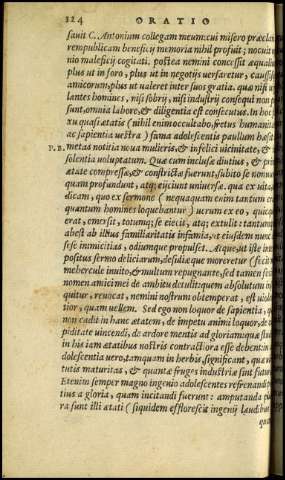 324 ORATIO
sauit C. Antonium collegam meum: cui misero præclari
rempublicam beneficij memoria nihil profuit; nocuit
nio maleficij cogitati. postea nemini concessit æqualiu
plus ut in foro, plus ut in negotijs uersaretur, caussisq́
amicorum, plus ut ualeret inter suos gratia. quæ nisi u
lantes homines, nisi sobrij, nisi industrij consequi non p
sunt, omnia labore, & diligentia est consecutus. In hoc
xu quasi ætatis (nihil enim occultabo, fretus humanita
ac sapientia uestra) fama adolescentis paullum hæsit
P. B. metas notitia noua mulieris, & infelici uicinitate, &
solentia uoluptatum. Quæ cum inclusæ diutius, & pri
ætate compressæ, & constrictæ fuerunt, subito se nonnu
quam profundunt, atq; eijciunt uniuersæ. qua ex uita
dicam, quo ex sermone (nequaquam enim tantum er
quantum homines loquebantur) uerum ex eo, quicq
erat, emersit, totumq; se eiecit, atq; extulit: tantumq
abest ab illius familiaritatis infamia, ut eiusdem nunc
sese inimicitias, odiumque propulset. Atque, ut iste inte
positus sermo deliciarum, desidiæque moreretur (fecit
mehercule inuito, & multum repugnante, sed tamen fecit
nomen amici mei de ambitu detulit: quem absolutum in
quitur, reuocat, nemini nostrum obtemperat, est uiolen
tior, quam uellem. Sed ego non loquor de sapientia, q
non cadit in hanc ætatem, de impetu animi loquor, de cu
piditate uincendi, de ardore mentis ad gloriam: quæ studia
in his iam ætatibus nostris contractiora esse debent: in
dolescentia uero, tamquam in herbis, significant, quæ uir
tutis maturitas, & quantæ fruges industriæ sint futuræ
Etenim semper magno ingenio adolescentes refrenandi po
tius a gloria, quam incitandi fuerunt: amputanda plu
ra sunt illi ætati (siquidem efflorescit ingenij laudibus